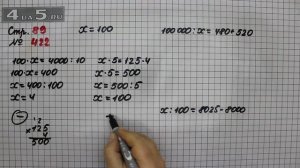 4u5.ru
Стр. 89
№ 422
x = 100
100 000 : x = 480 + 520
100 · x = 4000 : 10
100 · x = 400
x = 400 : 100
x = 4
x · 5 = 125 · 4
x · 5 = 500
x = 500 : 5
x = 100
x : 100 = 8025 - 8000
12
× 125
4
500